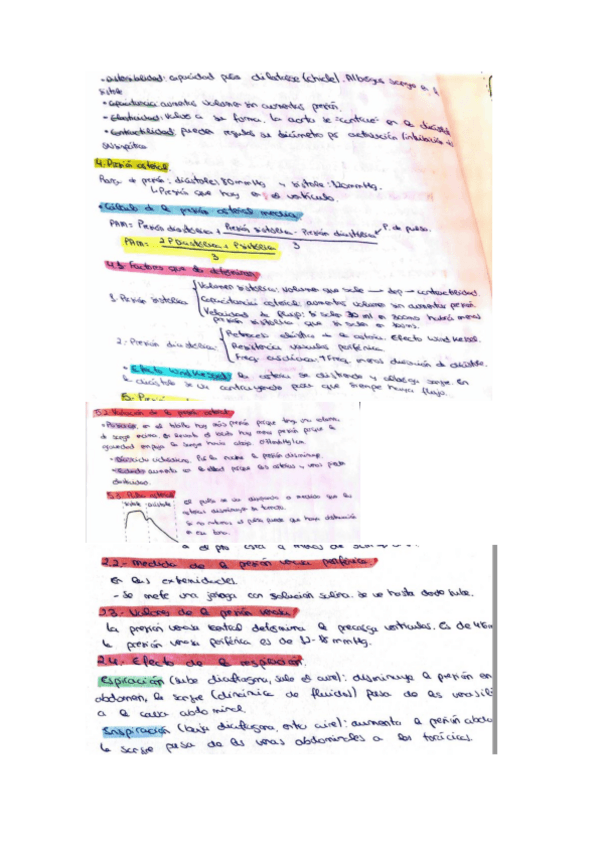 - Distensibilidad: capacidad para dilatarse (diástole). Alberga sangre en la
sístole
• Capacitancia: aumenta volumen sin aumentar presión.
• Elasticidad: vuelve a su forma, la aorta se contrae en la diástole
• Contractilidad: pueden regular su diámetro por activación / inhibición del
Simpático
4. Presión arterial.
Rango de presión: diástole: 80 mmHg y sístole: 120 mmHg.
↳ Presión que hay en el ventrículo.
• Cálculo de la presión arterial media.
PAM = Presión diastólica + Presión sistólica - Presión diastólica / 3 P. de pulso.
PAM = 2 P Diastólica + P sistólica / 3
4.1. Factores que la determinan
1. Presión sistólica
Volumen sistólico: volumen que sale → dep → contractilidad.
Capacitancia arterial: aumenta volumen sin aumentar presión.
Velocidad de flujo: si salen 70 ml en 300ms habrá menos
presión sistólica que si salen en
2. Presión diastólica:
Retroceso elástico de la arteria. Efecto Windkessel.
Resistencia vascular periférica.
Frec. cardíaca: ↑ Frec. menos duración de diástole.
• Efecto Windkessel: la arteria se distiende y alberga sangre. En
la diástole se va contrayendo para que siempre haya flujo.
5.2. Variación de la presión arterial
• Posición: en el tobillo hay más presión porque tengo una columna
de sangre encima. Si levanto el brazo hay menos presión porque la
gravedad empuja la sangre hacia abajo. 0,77mmHg/cm.
- Ejercicio
la presión disminuye.
- Edad: aumenta con la edad porque las arterias y venas pierden
elasticidad.
5.3. Pulso arterial
sístole diástole
El pulso se va disipando a medida que las
arterias disminuyen su tamaño.
Si no notamos el pulso puede que haya obstrucción
en esa zona.
2.2.- Medida de la presión venosa periférica.
En las extremidades.
- Se mete una jeringa con solución salina. Se ve hasta donde sube.
2.3.- Valores de la presión venosa
La presión venosa central determina la precarga ventricular. Es de 4-6 m
la presión venosa periférica es de 12-18 mmHg.
2.4.- Efecto de la respiración.
Espiración (sube diafragma, sale el aire): disminuye la presión en
abdomen, la sangre (dinámica de fluidos) pasa de las venas
a la cava abdominal.
Inspiración (baja diafragma, entra aire): aumenta la presión abdo
la sangre pasa de las venas abdominales a las torácicas.